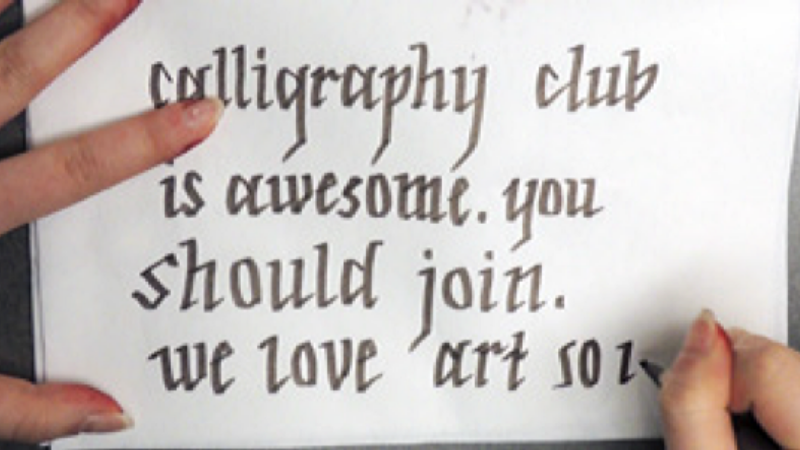 calligraphy club
is awesome. you
should join.
we love art so